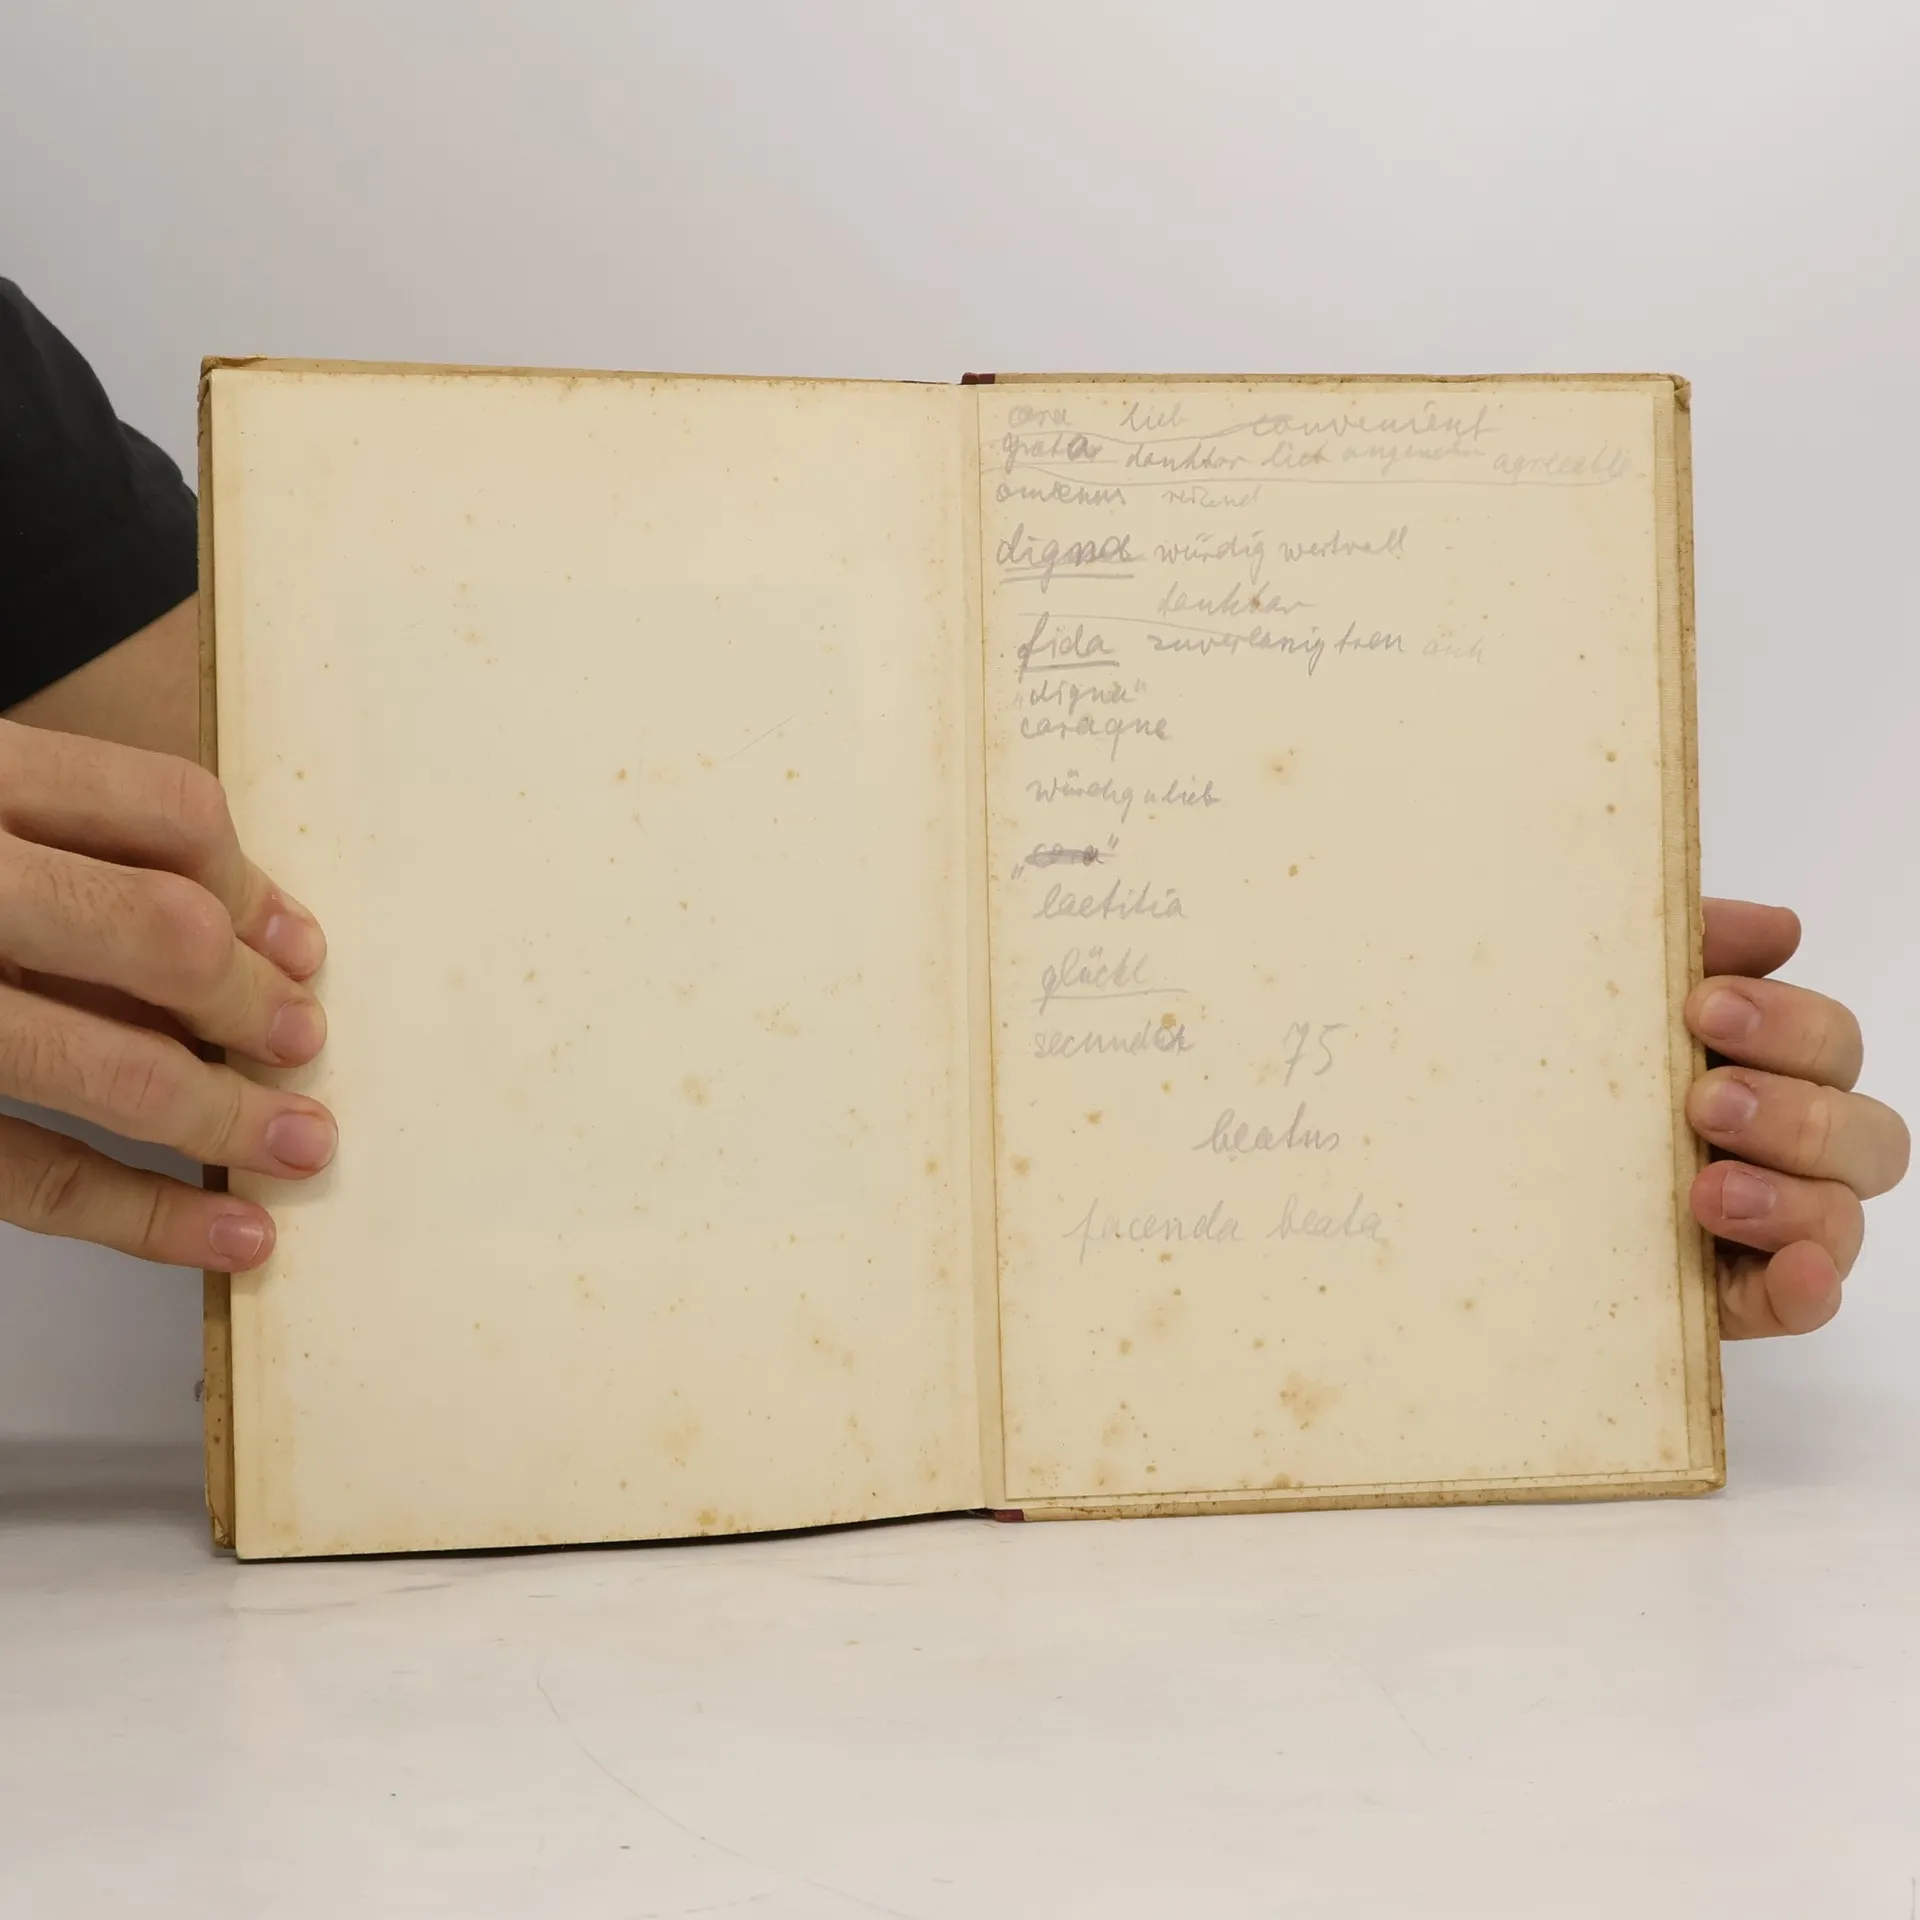 cara lieb convenient
grata dankbar lieb angenehm agreeable
amoenus reizend
digna würdig wertvoll
dankbar
fida zuverlässig treu auch
„digna"
caraque
würdig u lieb
„cara"
laetitia
glückl
secunda 75
beatus
facenda beata